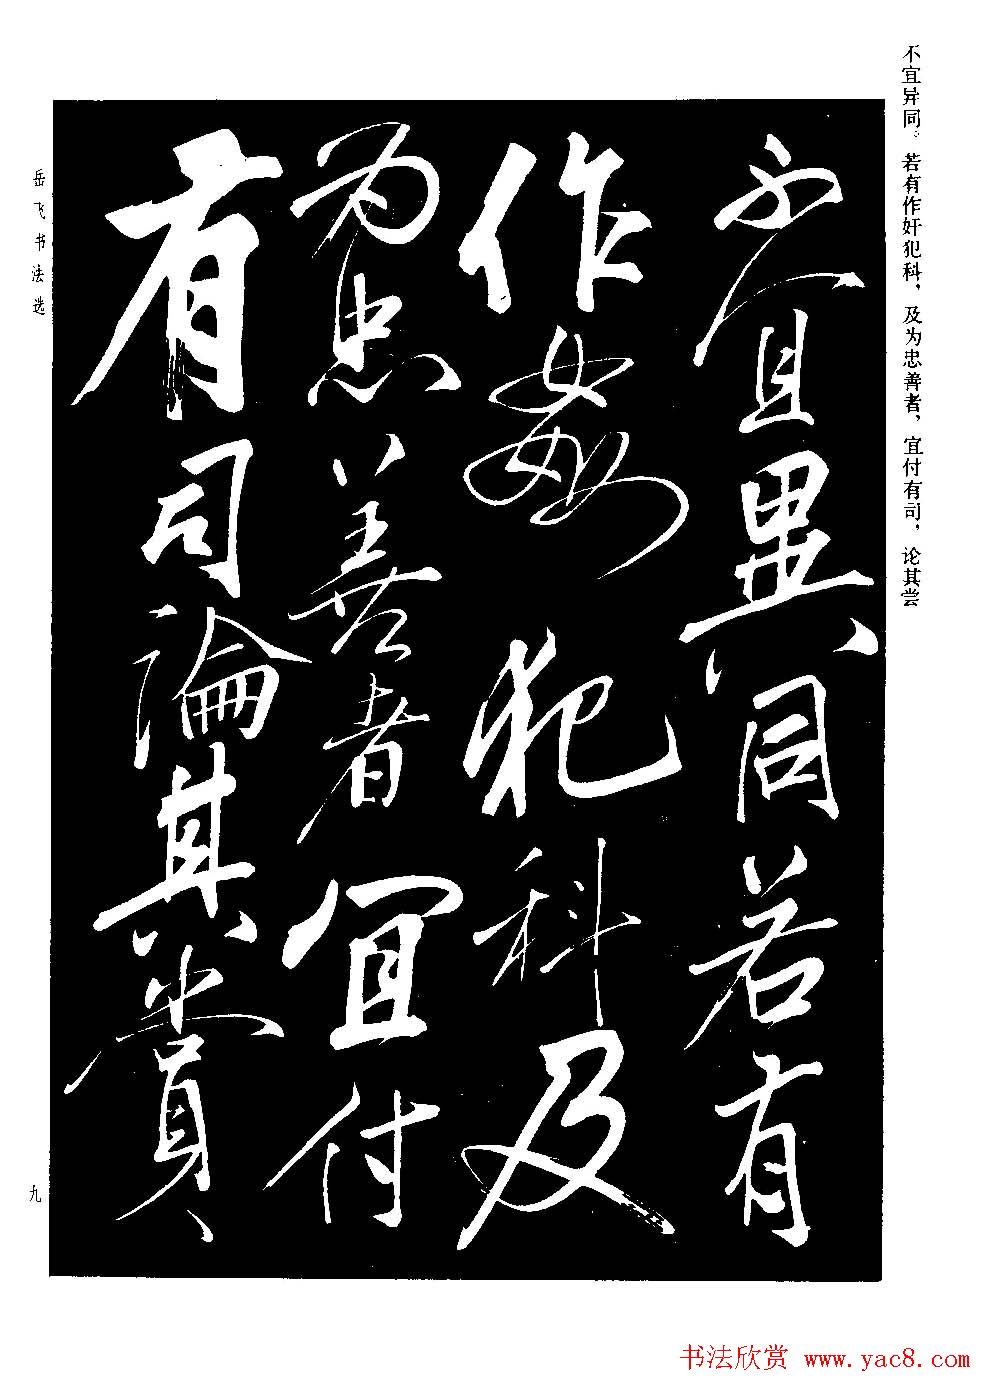 不宜异同。若有作奸犯科，及为忠善者，宜付有司，论其尝
不宜異同若有
作姦犯科及
为忠善者宜付
有司論其賞
岳飞书法选
九
书法欣赏 www.yac8.com